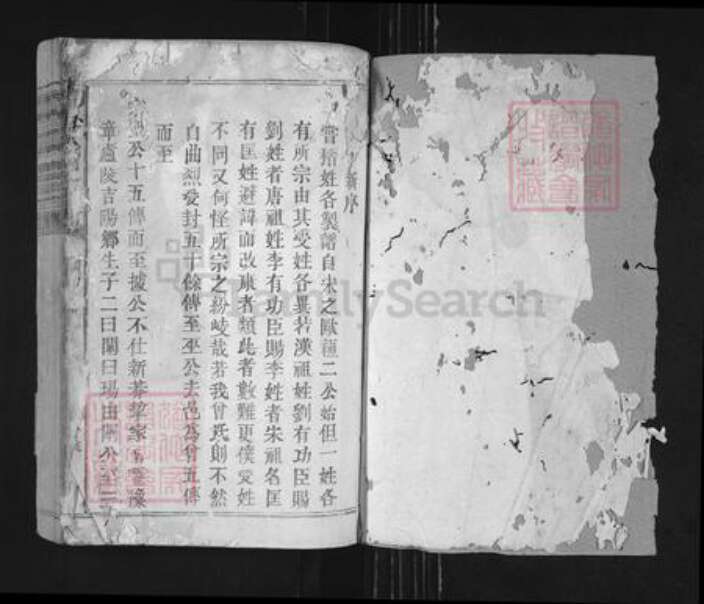 新序
嘗稽姓各製譜自宋之歐蘇二公始但一姓各
有所宗由其受姓各異若漢祖姓劉有功臣賜
劉姓者唐祖姓李有功臣賜李姓者宋祖名匡
有匡姓避諱而改康者類此者數難更僕受姓
不同又何怪所宗之紛岐哉若我曾氏則不然
自曲烈受封五十餘傳至巫公去邑為曾五傳
而至
公十五傳而至據公不仕新莽挈家 豫
章廬陵吉陽鄉生子二曰闡曰瑒由闡公至
FamilySearch